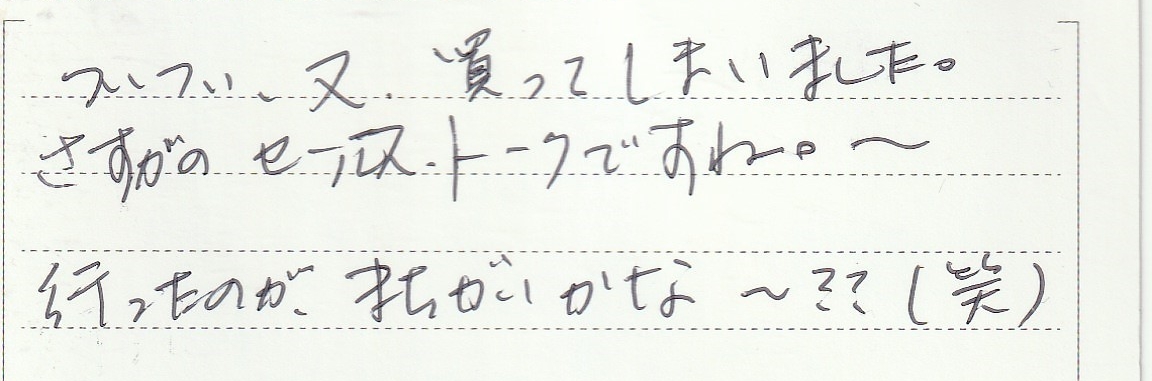 ついつい、又、買ってしまいました。
さすがの セールス・トークですね。〜
行ったのが、まちがいかな 〜??(笑)